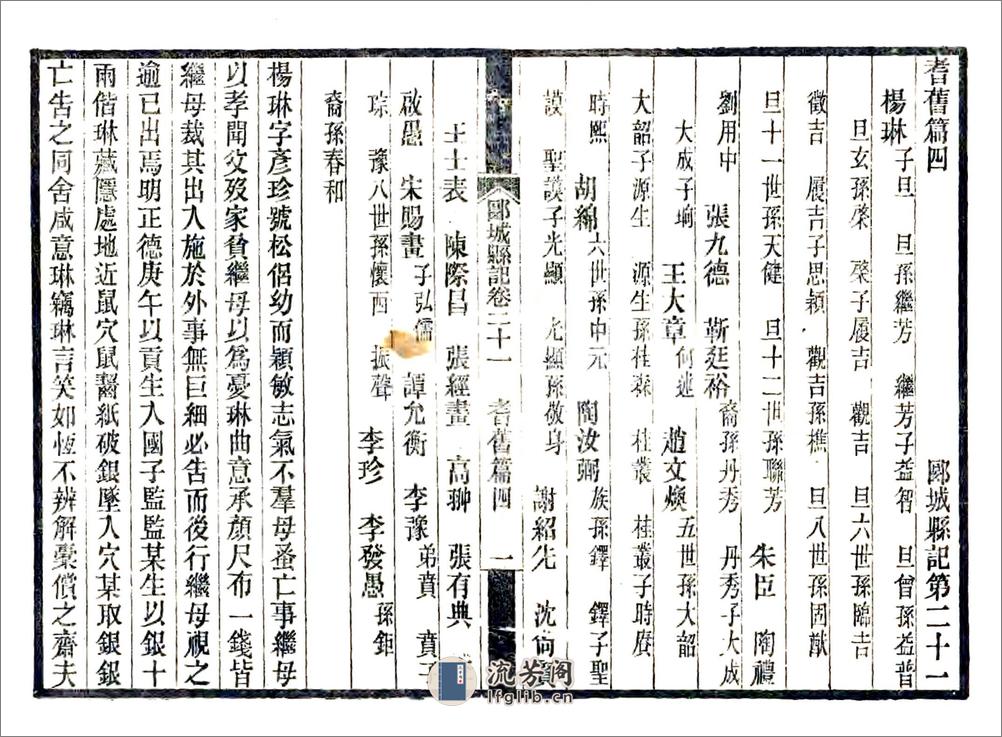 耆舊篇四　郾城縣記第二十一
楊琳　子旦　旦孫繼芳　繼芳子益智　旦曾孫益普
旦玄孫棨　棨子履吉　觀吉　旦六世孫臨吉
徵吉　履吉子思穎　觀吉孫樵　旦八世孫因猷
旦十一世孫天健　旦十二世孫聯芳　朱臣　陶禮
劉用中　張九德　靳廷裕　裔孫丹秀　丹秀子大成
大成子瑜　王大章　何述　趙文煥　五世孫大韶
大韶子源生　源生孫桂森　桂叢　桂叢子時賡
時熙　胡綿　六世孫中元　陶汝弼　族孫鐸　鐸子聖
謨　聖謨子光顯　光顯孫敬身　謝紹先　沈向賢
郾城縣記卷二十一　耆舊篇四　一
王士表　陳際昌　張經畫　高翀　張有典
啟愚　宋賜畫　子弘儒　譚允衡　李豫　弟賁　賁子
琮　豫八世孫懷西　振聲　李珍　李發愚　孫鉅
裔孫春和
楊琳字彥珍號松侶幼而穎敏志氣不羣母蚤亡事繼母
以孝聞父歿家貧繼母以為憂琳曲意承顏尺布一錢皆
繼母裁其出入施於外事無巨細必告而後行繼母視之
逾已出焉明正德庚午以貢生入國子監監某生以銀十
兩偕琳藏隱處地近鼠穴鼠齧紙破銀墜入穴某取銀銀
亡告之同舍咸意琳竊琳言笑如恆不辨解橐償之齋夫
流芳阁
lfglib.cn